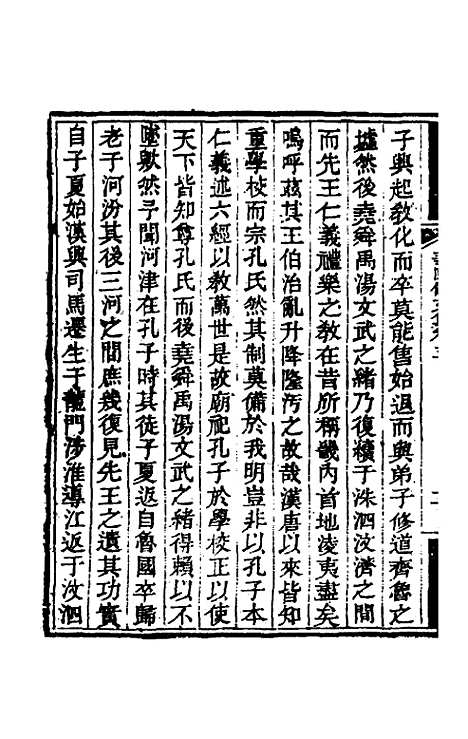 子興起教化而卒莫能售始退而與弟子修道齊魯之
墟然後堯舜禹湯文武之緒乃復續于洙泗汶濟之間
而先王仁義禮樂之教在昔所稱畿內首地淩夷盡矣
嗚呼茲其王伯治亂升降隆汚之故哉漢唐以來皆知
重學校而宗孔氏然其制莫備於我明豈非以孔子本
仁義述六經以教萬世是故廟祀孔子於學校正以使
天下皆知尊孔氏而後堯舜禹湯文武之緒得賴以不
墜歟然予聞河津在孔子時其徒子夏返自魯國卒歸
老于河汾其後三河之間庶幾復見先王之遺其功實
自子夏始漢興司馬遷生于龍門涉淮導江返于汶泗